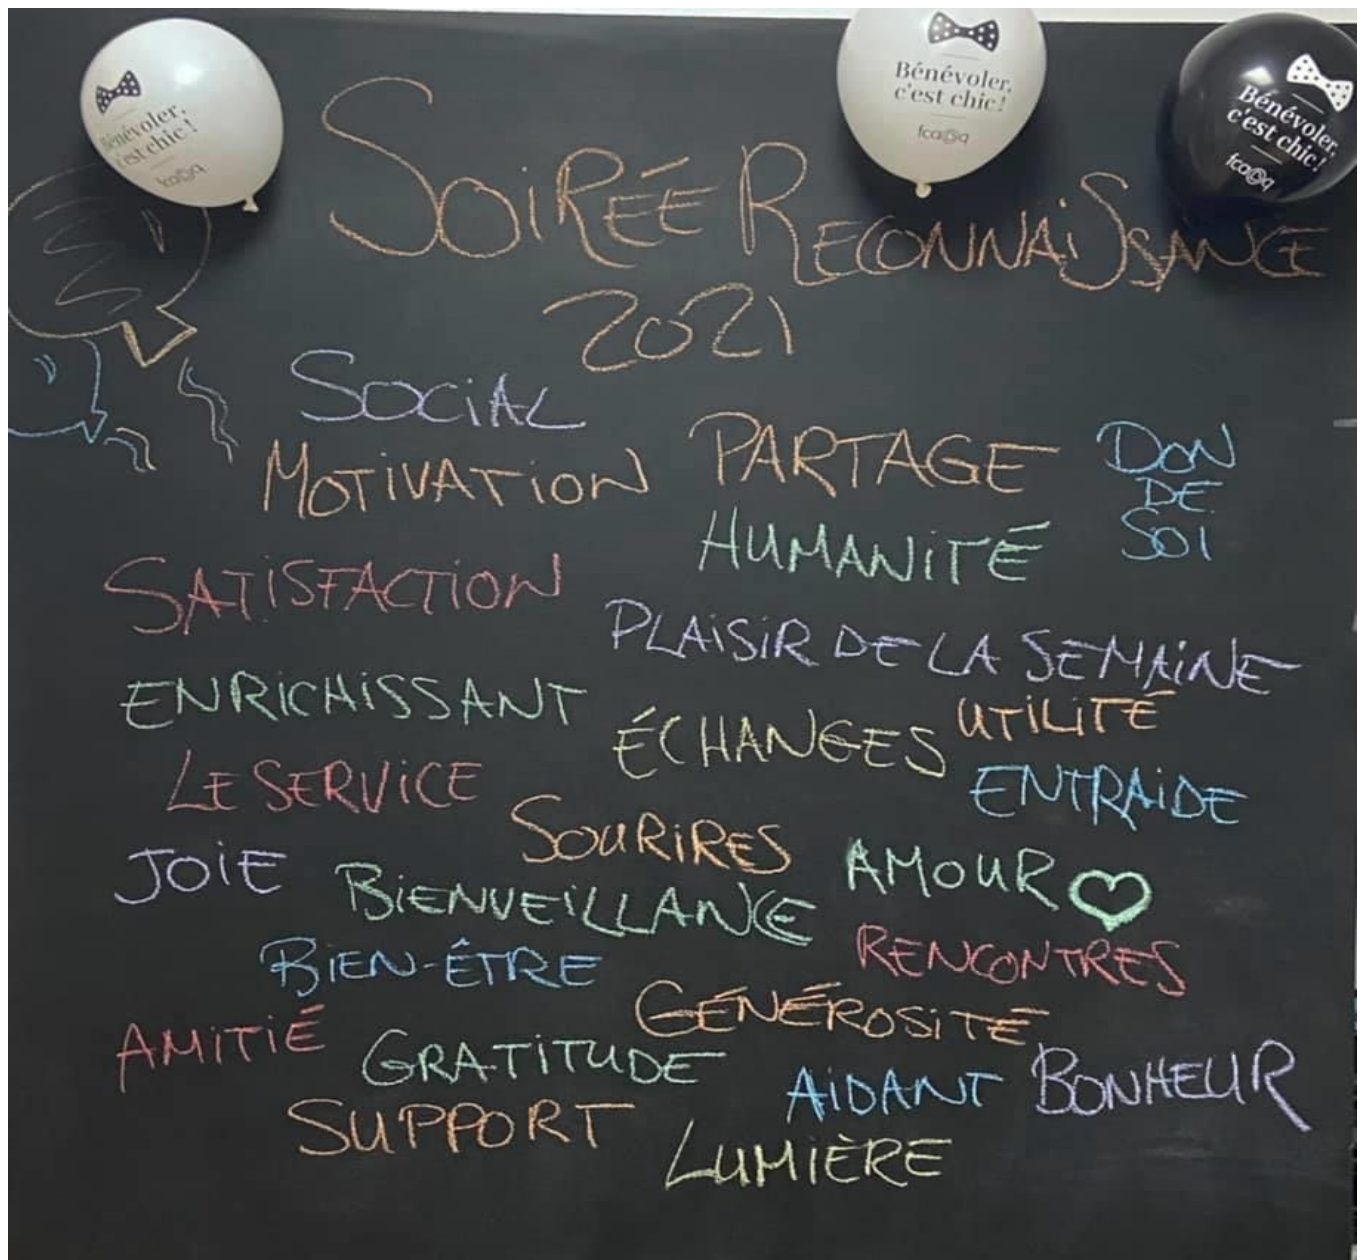 Bénévoler,
c'est chic !
fcabq
Bénévoler,
c'est chic !
fcabq
Bénévoler,
c'est chic !
fcabq
SOIRÉE RECONNAISSANCE
2021
SOCIAL
MOTIVATION
PARTAGE
DON
DE
SOI
HUMANITÉ
SATISFACTION
PLAISIR DE LA SEMAINE
ENRICHISSANT
UTILITÉ
ÉCHANGES
LE SERVICE
ENTRAIDE
SOURIRES
JOIE
AMOUR
BIENVEILLANCE
RENCONTRES
BIEN-ÊTRE
GÉNÉROSITÉ
AMITIÉ
GRATITUDE
AIDANT
BONHEUR
SUPPORT
LUMIÈRE